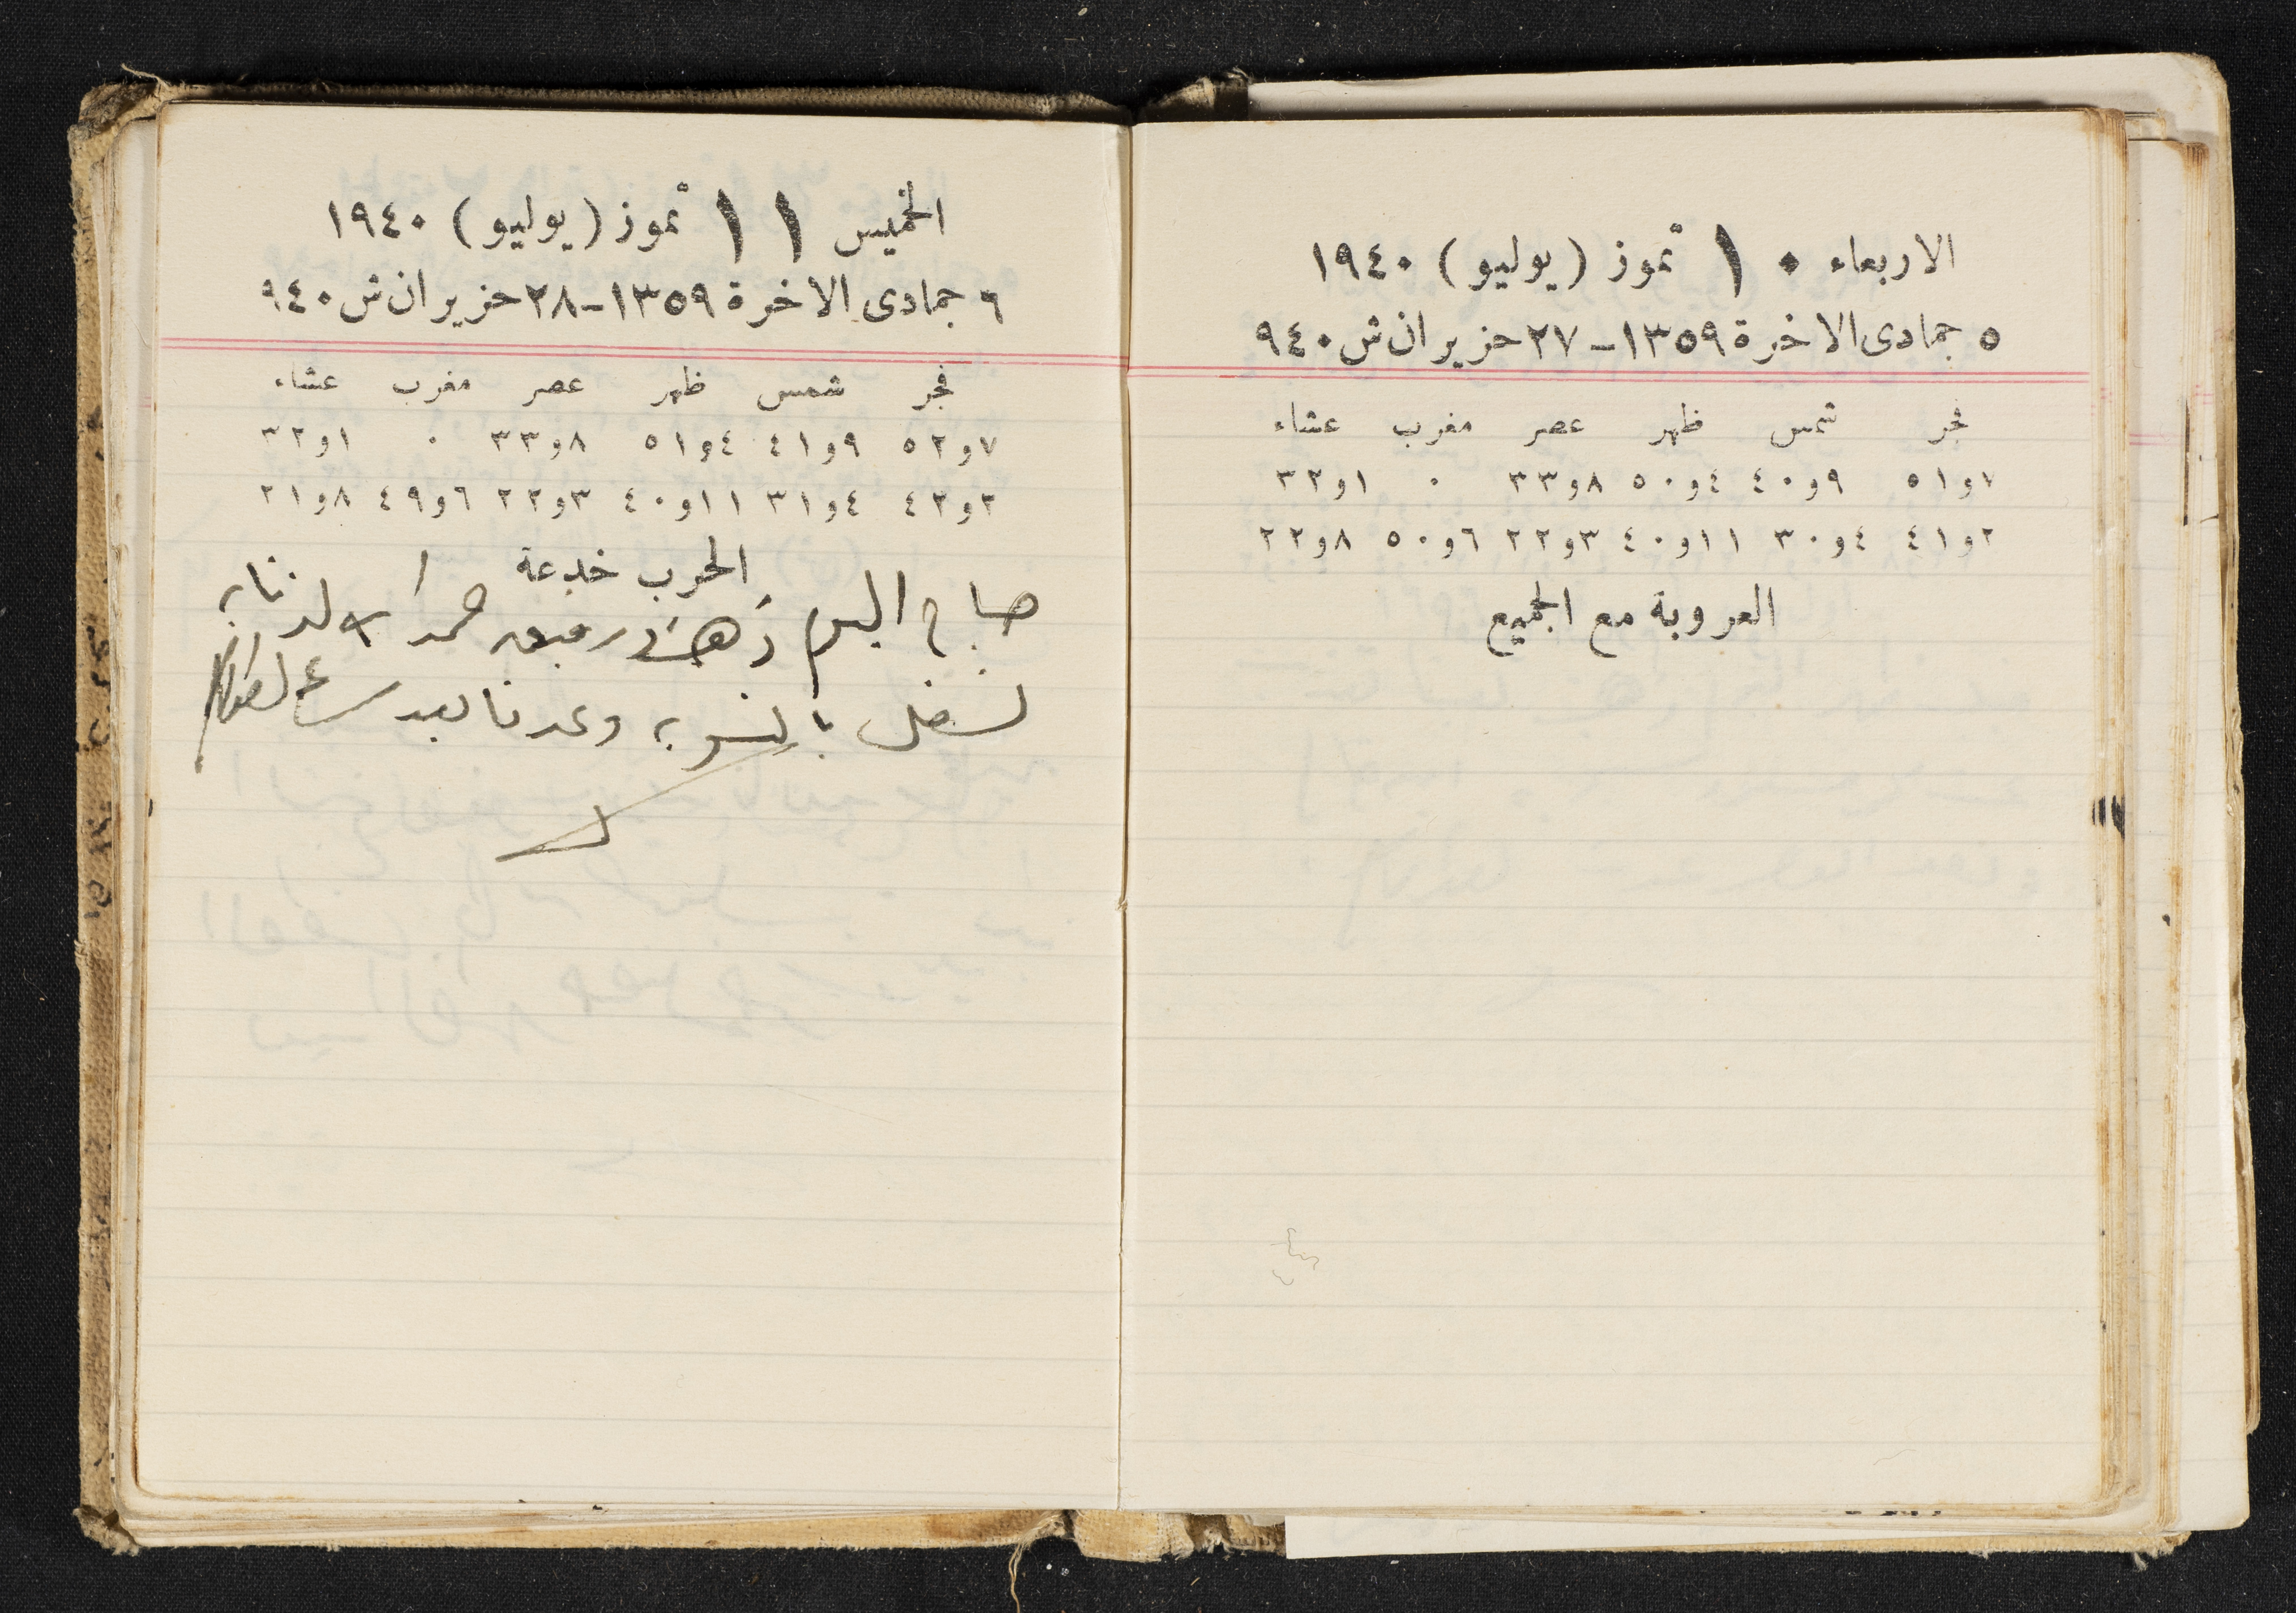 الاربعاء ١٠ تموز (يوليو) ١٩٤٠
٥ جمادى الاخرة ١٣٥٩ - ٢٧ حزيران ش ٩٤٠
فجر شمس ظهر عصر مغرب عشاء
٧و٥١ ٩و٤٠ ٤و٥٠ ٨و٣٣ ٠ ١و٣٢
٢و٤١ ٤و٣٠ ١١و٤٠ ٣و٢٢ ٦و٥٠ ٨و٢٢
العروبة مع الجميع
الخميس ١١ تموز (يوليو) ١٩٤٠
٦ جمادى الاخرة ١٣٥٩ - ٢٨ حزيران ش ٩٤٠
فجر شمس ظهر عصر مغرب عشاء
٧و٥٢ ٩و٤١ ٤و٥١ ٨و٣٣ ٠ ١و٣٢
٢و٤٢ ٤و٣١ ١١و٤٠ ٣و٢٢ ٦و٤٩ ٨و٢١
الحرب خدعة
صباح اليوم
وعدنا بعد